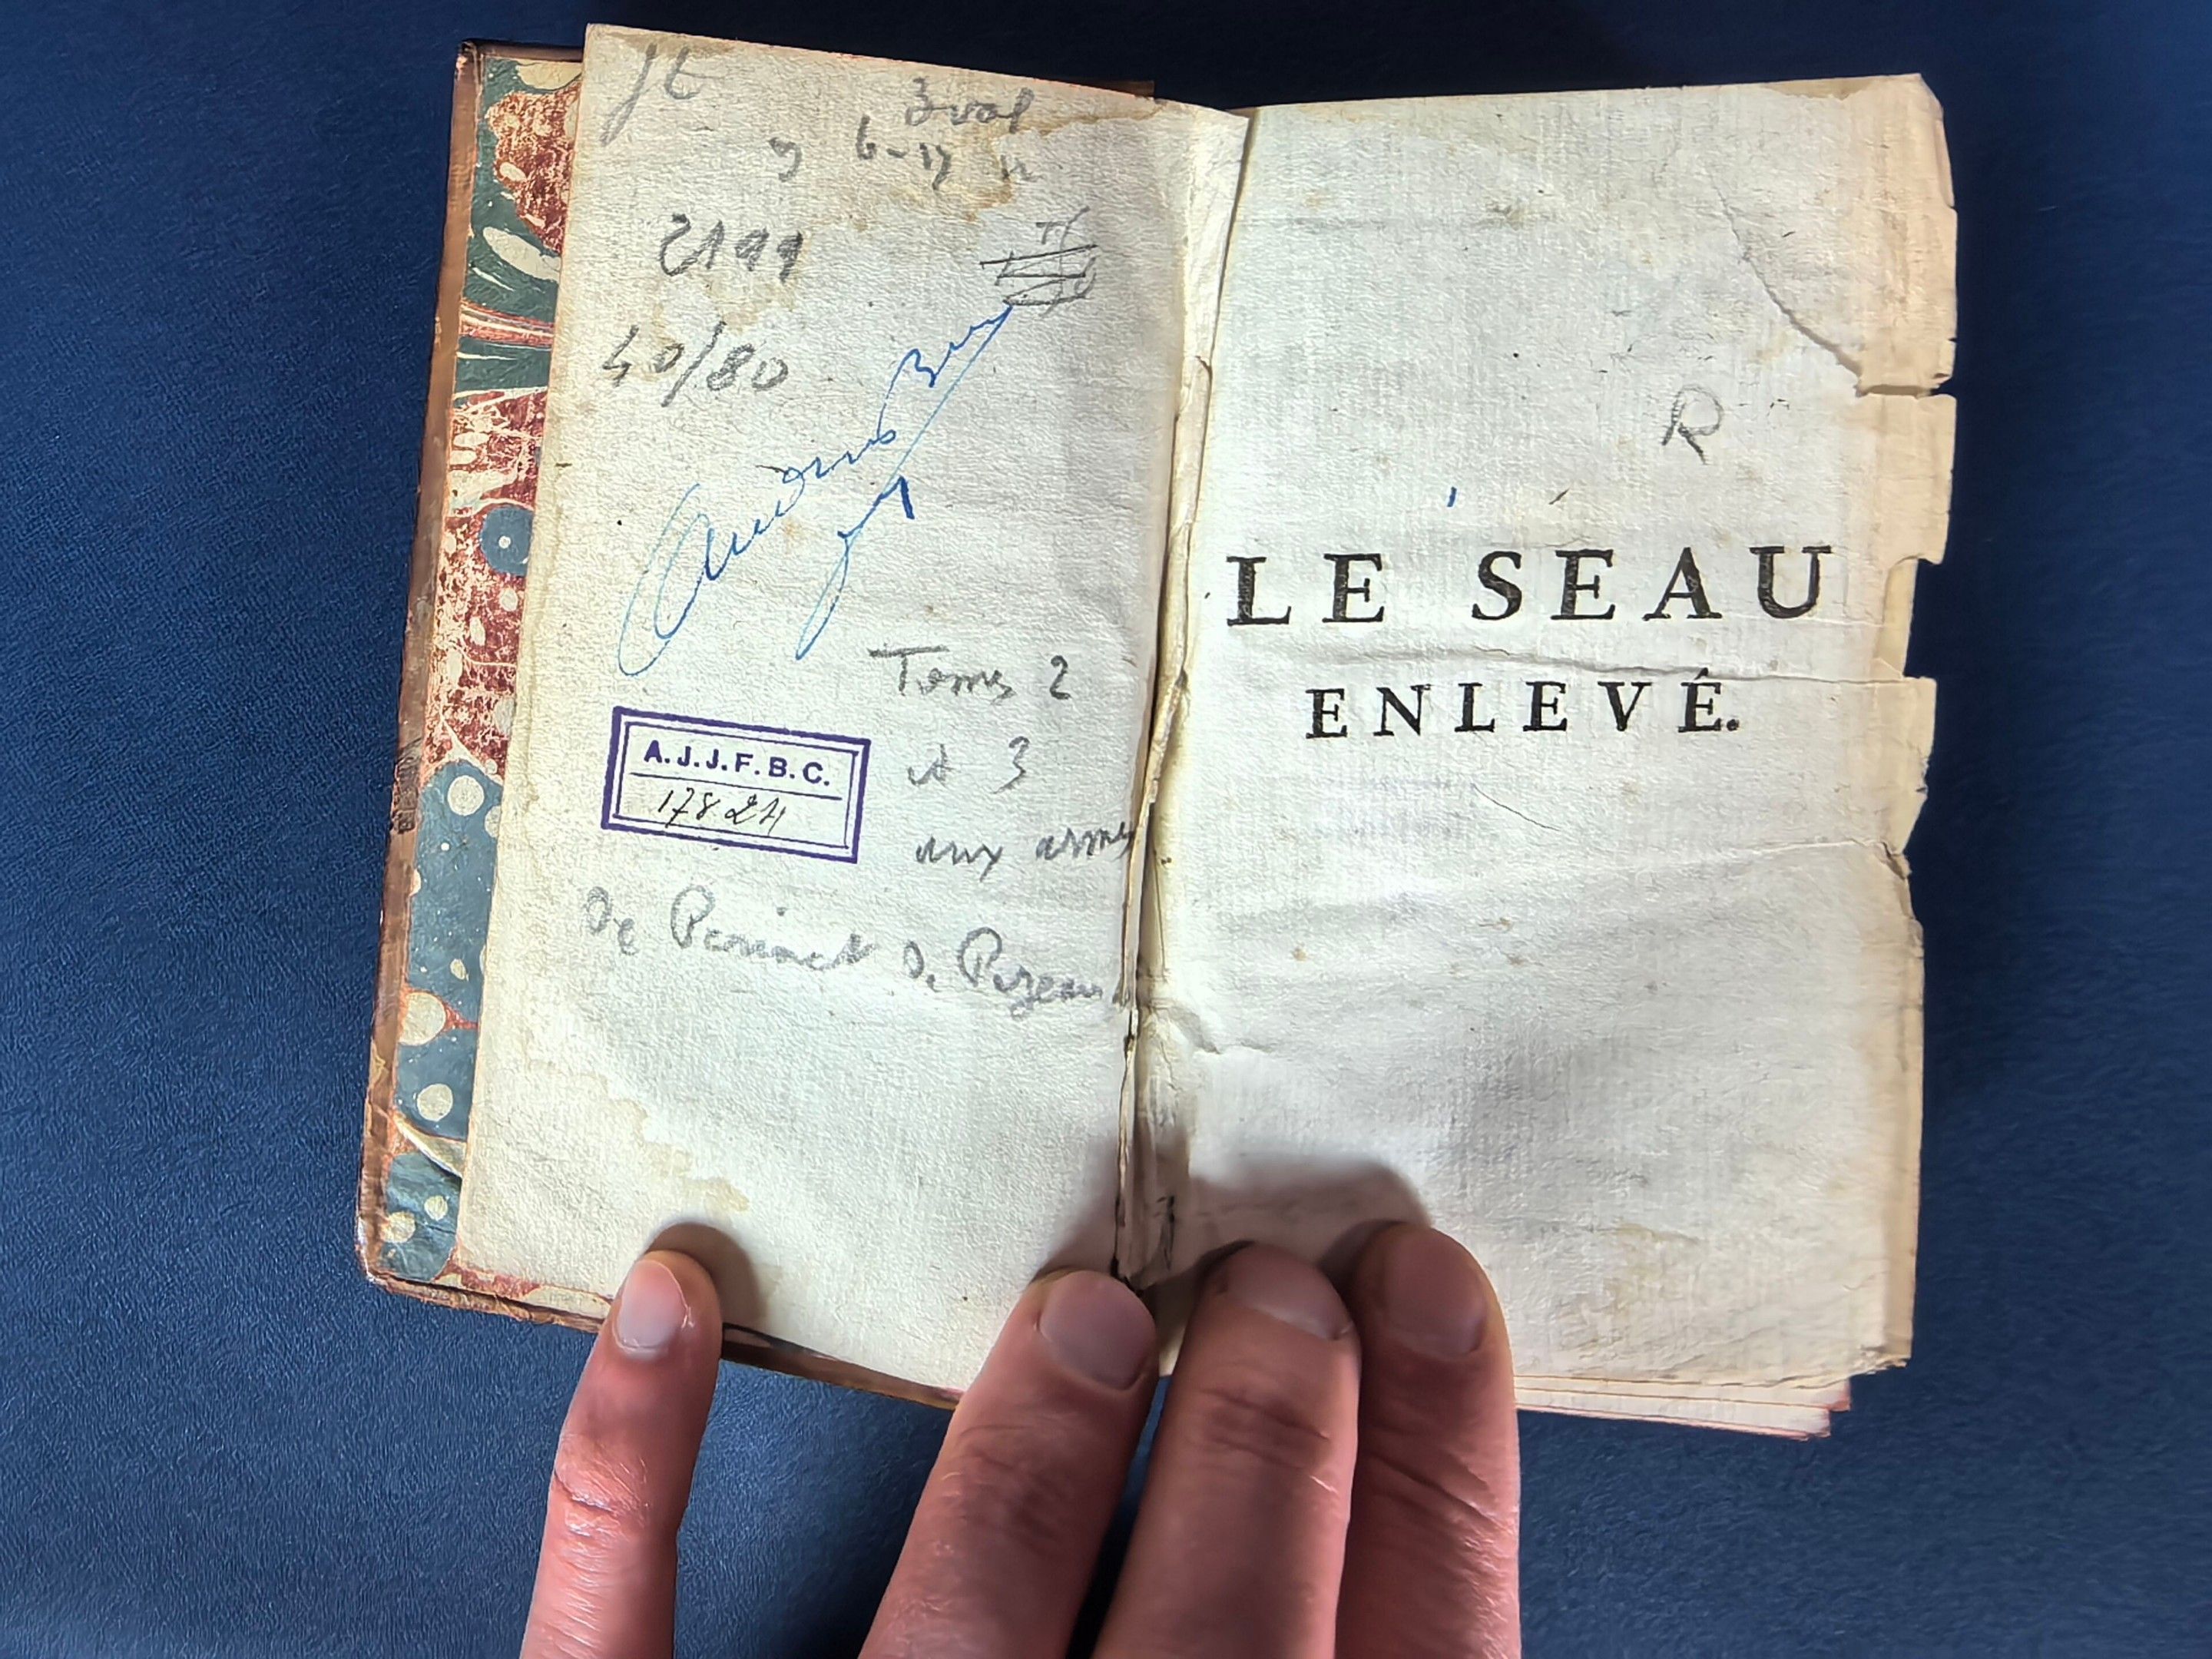 JL
3 vol
2199
40/80
Tomes 2
et 3
aux armes
De Perinet de Pezeau
A.J.J.F.B.C.
17824
R
LE SEAU
ENLEVÉ.